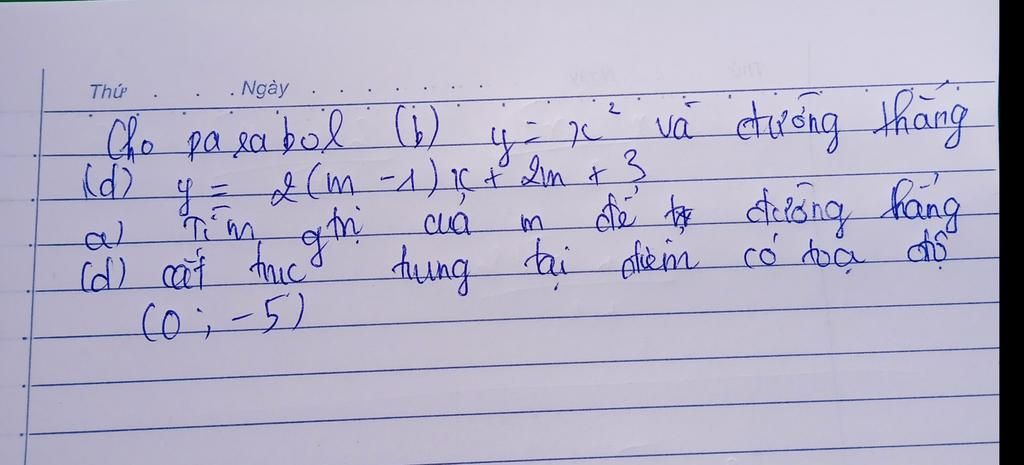 Thứ . . . . Ngày . . . . . . . .
Cho parabol (b) y = x² và đường thẳng
(d) y = 2(m - 1)x + 2m + 3
a) Tìm gtrị của m để đường hẳng
(d) cắt trục tung tại điểm có toạ độ
(0 ; -5)